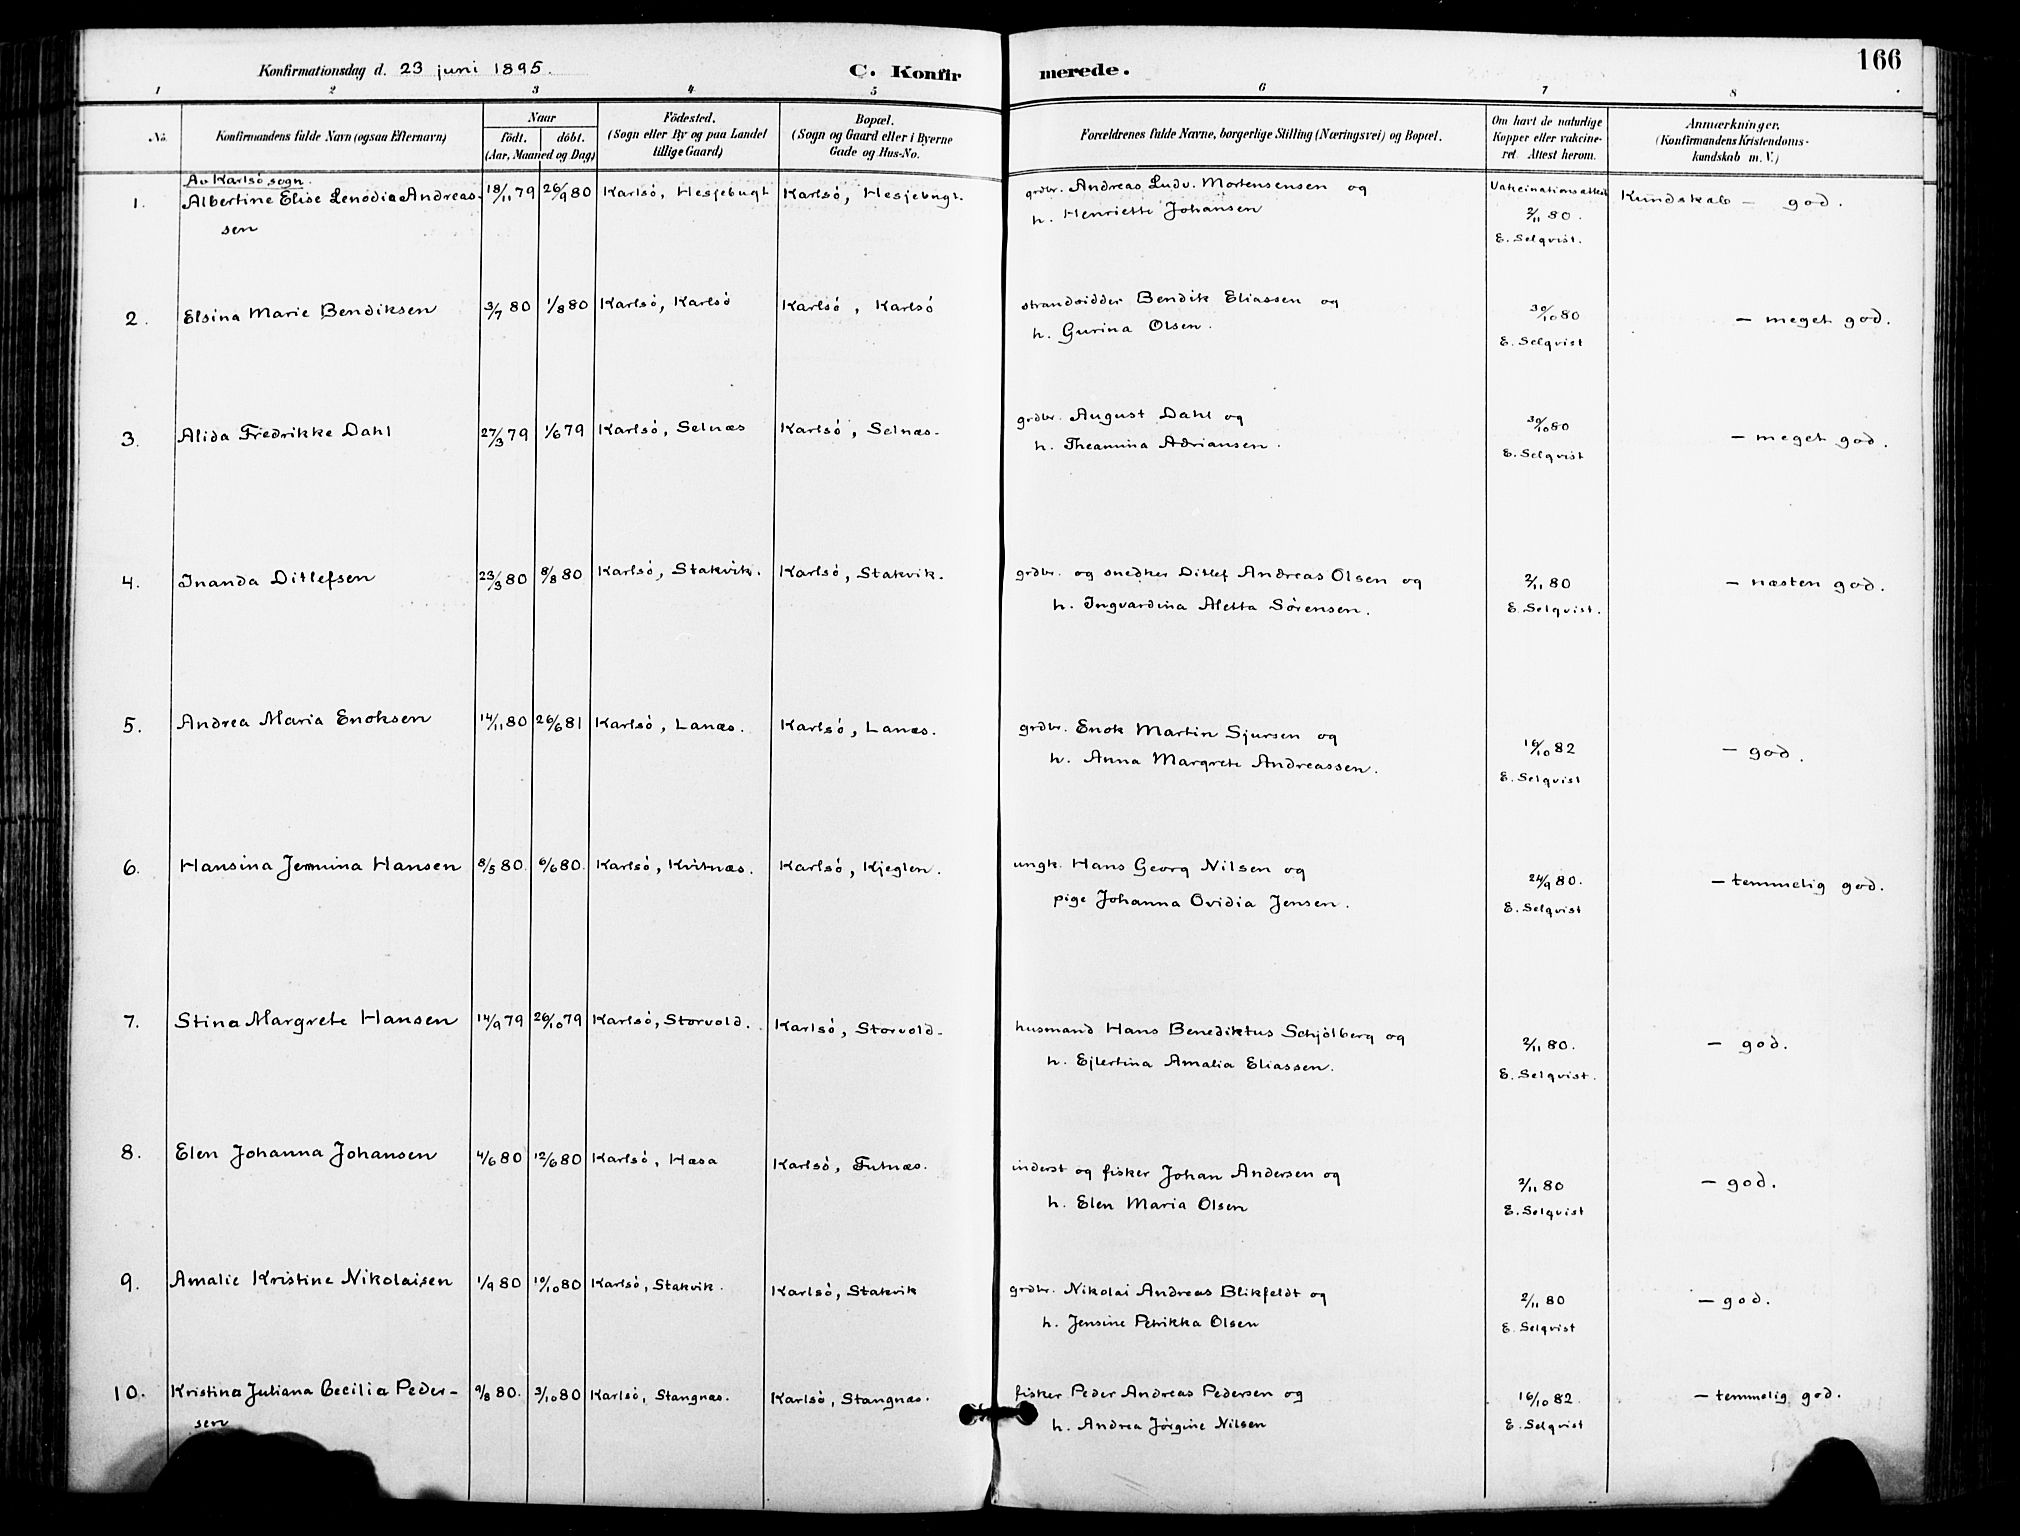 Konfirmationsdag d. 23 juni 1895.
C. Konfirmerede.
166
1 2 3 4 5 6 7 8
No.
Konfirmandens fulde Navn (ogsaa Efternavn)
Naar
Födt. döbt.
(Aar, Maaned og Dag)
Födested.
(Sogn eller By og paa Landet
tillige Gaard)
Bopæl.
(Sogn og Gaard eller i Byerne
Gade og Hus-No.
Forældrenes fulde Navne, borgerlige Stilling (Næringsvei) og Bopæl.
Om havt de naturlige
Kopper eller vakcine-
ret. Attest herom.
Anmærkninger.
(Konfirmandens Kristendoms-
kundskab m. V.)
Av Karlsö sogn.
1. Albertine Elise Lenodia Andreas- 18/11 79 26/9 80 Karlsö, Hesjebugt Karlsö, Hesjebugt. grdbr. Andreas Ludv. Mortensensen og Vakcinationsattest Kundskab – god.
sen h. Henriette Johansen 2/11 80.
E. Selqvist.
2. Elsina Marie Bendiksen 3/7 80 1/8 80 Karlsö, Karlsö Karlsö, Karlsö strandsidder Bendik Eliassen og 30/10 80 – meget god.
h. Gurina Olsen. E. Selqvist
3. Alida Fredrikke Dahl 27/3 79 1/6 79 Karlsö, Selnæs Karlsö, Selnæs. grdbr. August Dahl og 30/10 80 – meget god.
h. Theamina Adriansen. E. Selqvist
4. Inanda Ditlefsen 23/3 80 8/8 80 Karlsö, Stakvik. Karlsö, Stakvik. grdbr. og snedker Ditlef Andreas Olsen og 2/11 80 – næsten god.
h. Ingvardina Aletta Sörensen. E. Selqvist.
5. Andrea Maria Enoksen 14/11 80 26/6 81 Karlsö, Lanæs. Karlsö, Lanæs. grdbr. Enok Martin Sjursen og 16/10 82 – god.
h. Anna Margrete Andreassen. E. Selqvist
6. Hansina Jermina Hansen 8/5 80. 6/6 80. Karlsö, Kvitnæs. Karlsö, Kjeglen. ungk. Hans Georg Nilsen og 24/9 80. – temmelig god.
pige Johanna Ovidia Jensen. E. Selqvist
7. Stina Margrete Hansen 14/9 79 26/10 79 Karlsö, Storvold. Karlsö, Storvold. husmand Hans Benediktus Schjölberg og 2/11 80. – god.
h. Ejlertina Amalia Eliassen. E. Selqvist.
8. Elen Johanna Johansen 4/6 80 12/6 80 Karlsö, Hæsa Karlsö, Futnæs. inderst og fisker Johan Andersen og 2/11 80 – god.
h. Elen Maria Olsen E. Selqvist
9. Amalie Kristine Nikolaisen 1/9 80 10/10 80 Karlsö, Stakvik. Karlsö, Stakvik grdbr. Nikolai Andreas Blikfeldt og 2/11 80 – god.
h. Jensine Petrikka Olsen E. Selqvist
10. Kristina Juliana Cecilia Peder- 9/8 80. 3/10 80 Karlsö, Stangnæs. Karlsö, Stangnæs. fisker Peder Andreas Pedersen og 16/10 82. – temmelig god.
sen h. Andrea Jörgine Nilsen E. Selqvist